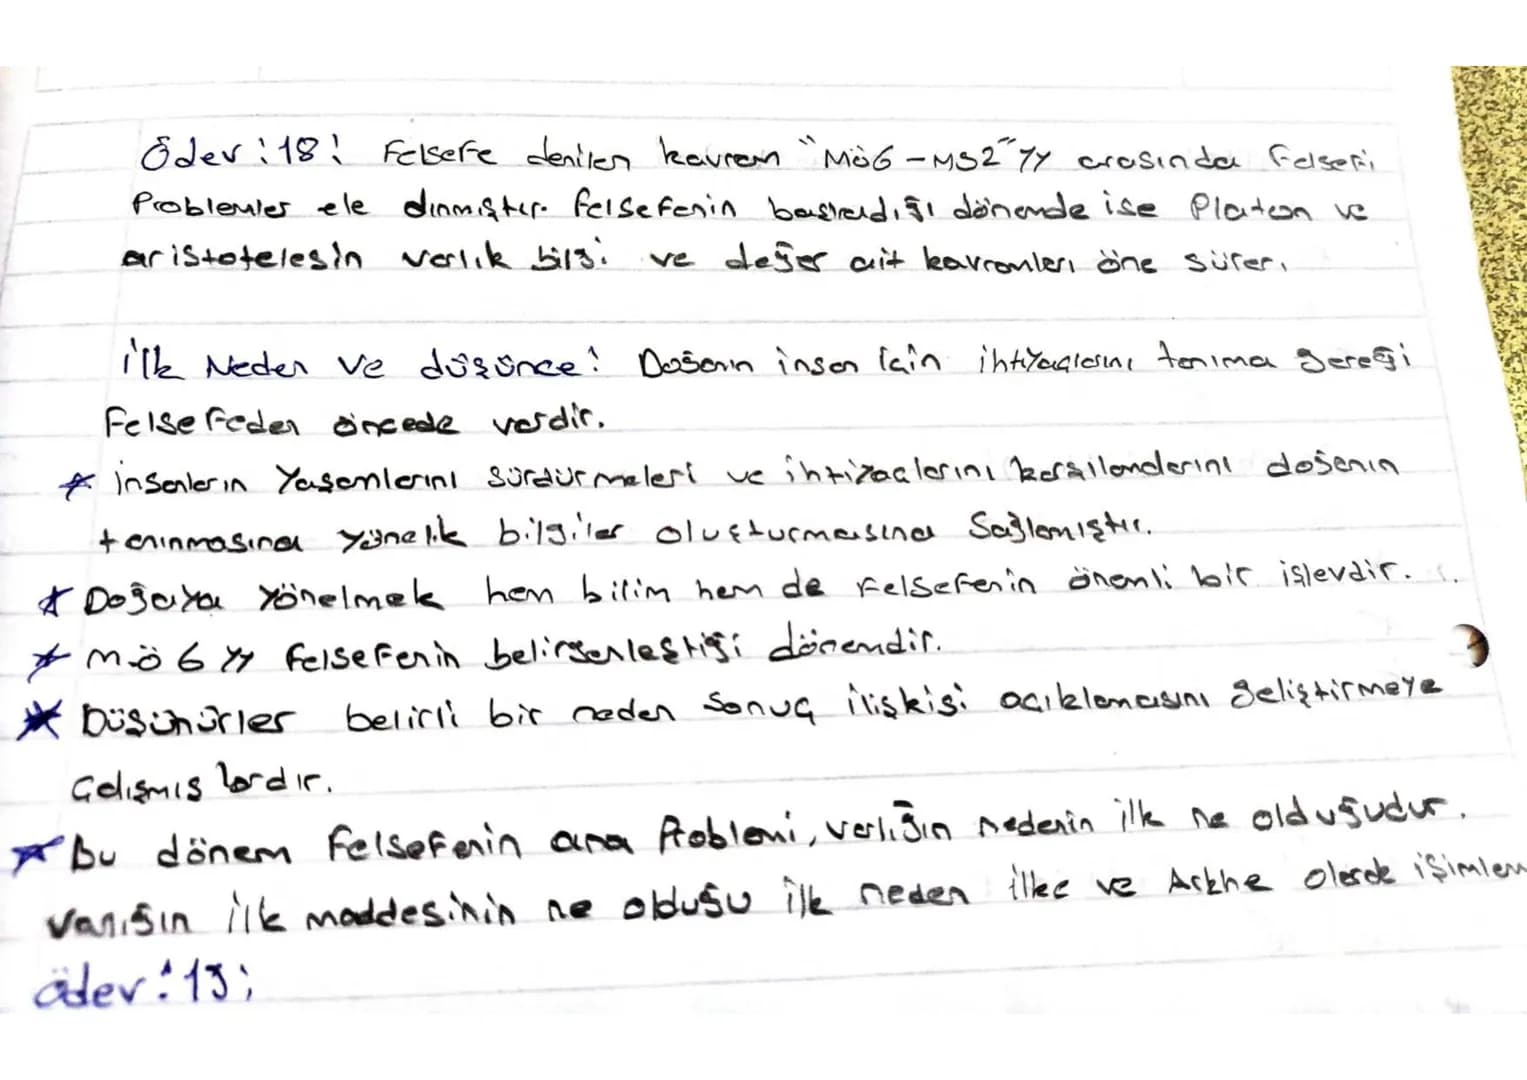 Ödev: 18: Felsefe denilen kavram "MÖ6 - MS2" yy arasında felsefi
Problemler ele alınmıştır. felsefenin başladığı dönemde ise Platon ve
aristotelesin varlık bilgi ve değer ait kavramları öne sürer.
ilk Neden ve düşünce: Doğanın insan için ihtiyaçlarını tanıma gereği
Felsefeden öncede vardır.
* insanların Yaşamlarını sürdürmeleri ve ihtiyaçlarını karşılandarını doğanın
tanınmasına yönelik bilgiler oluşturmasına Sağlamıştır.
* Doğaya yönelmek hem bilim hem de Felsefenin önemli bir işlevdir.
* M.Ö 6 yy felsefenin belirgenleştiği dönemdir.
* Düşünürler belirli bir neden sonuç ilişkisi açıklamasını geliştirmeye
Gelişmiş lardır.
* Bu dönem felsefenin ana Problemi, varlığın nedenin ilk ne olduğudur.
varlığın ilk maddesinin ne olduğu ilk neden ilke ve Arkhe olarak işimlen
ödev: 19;